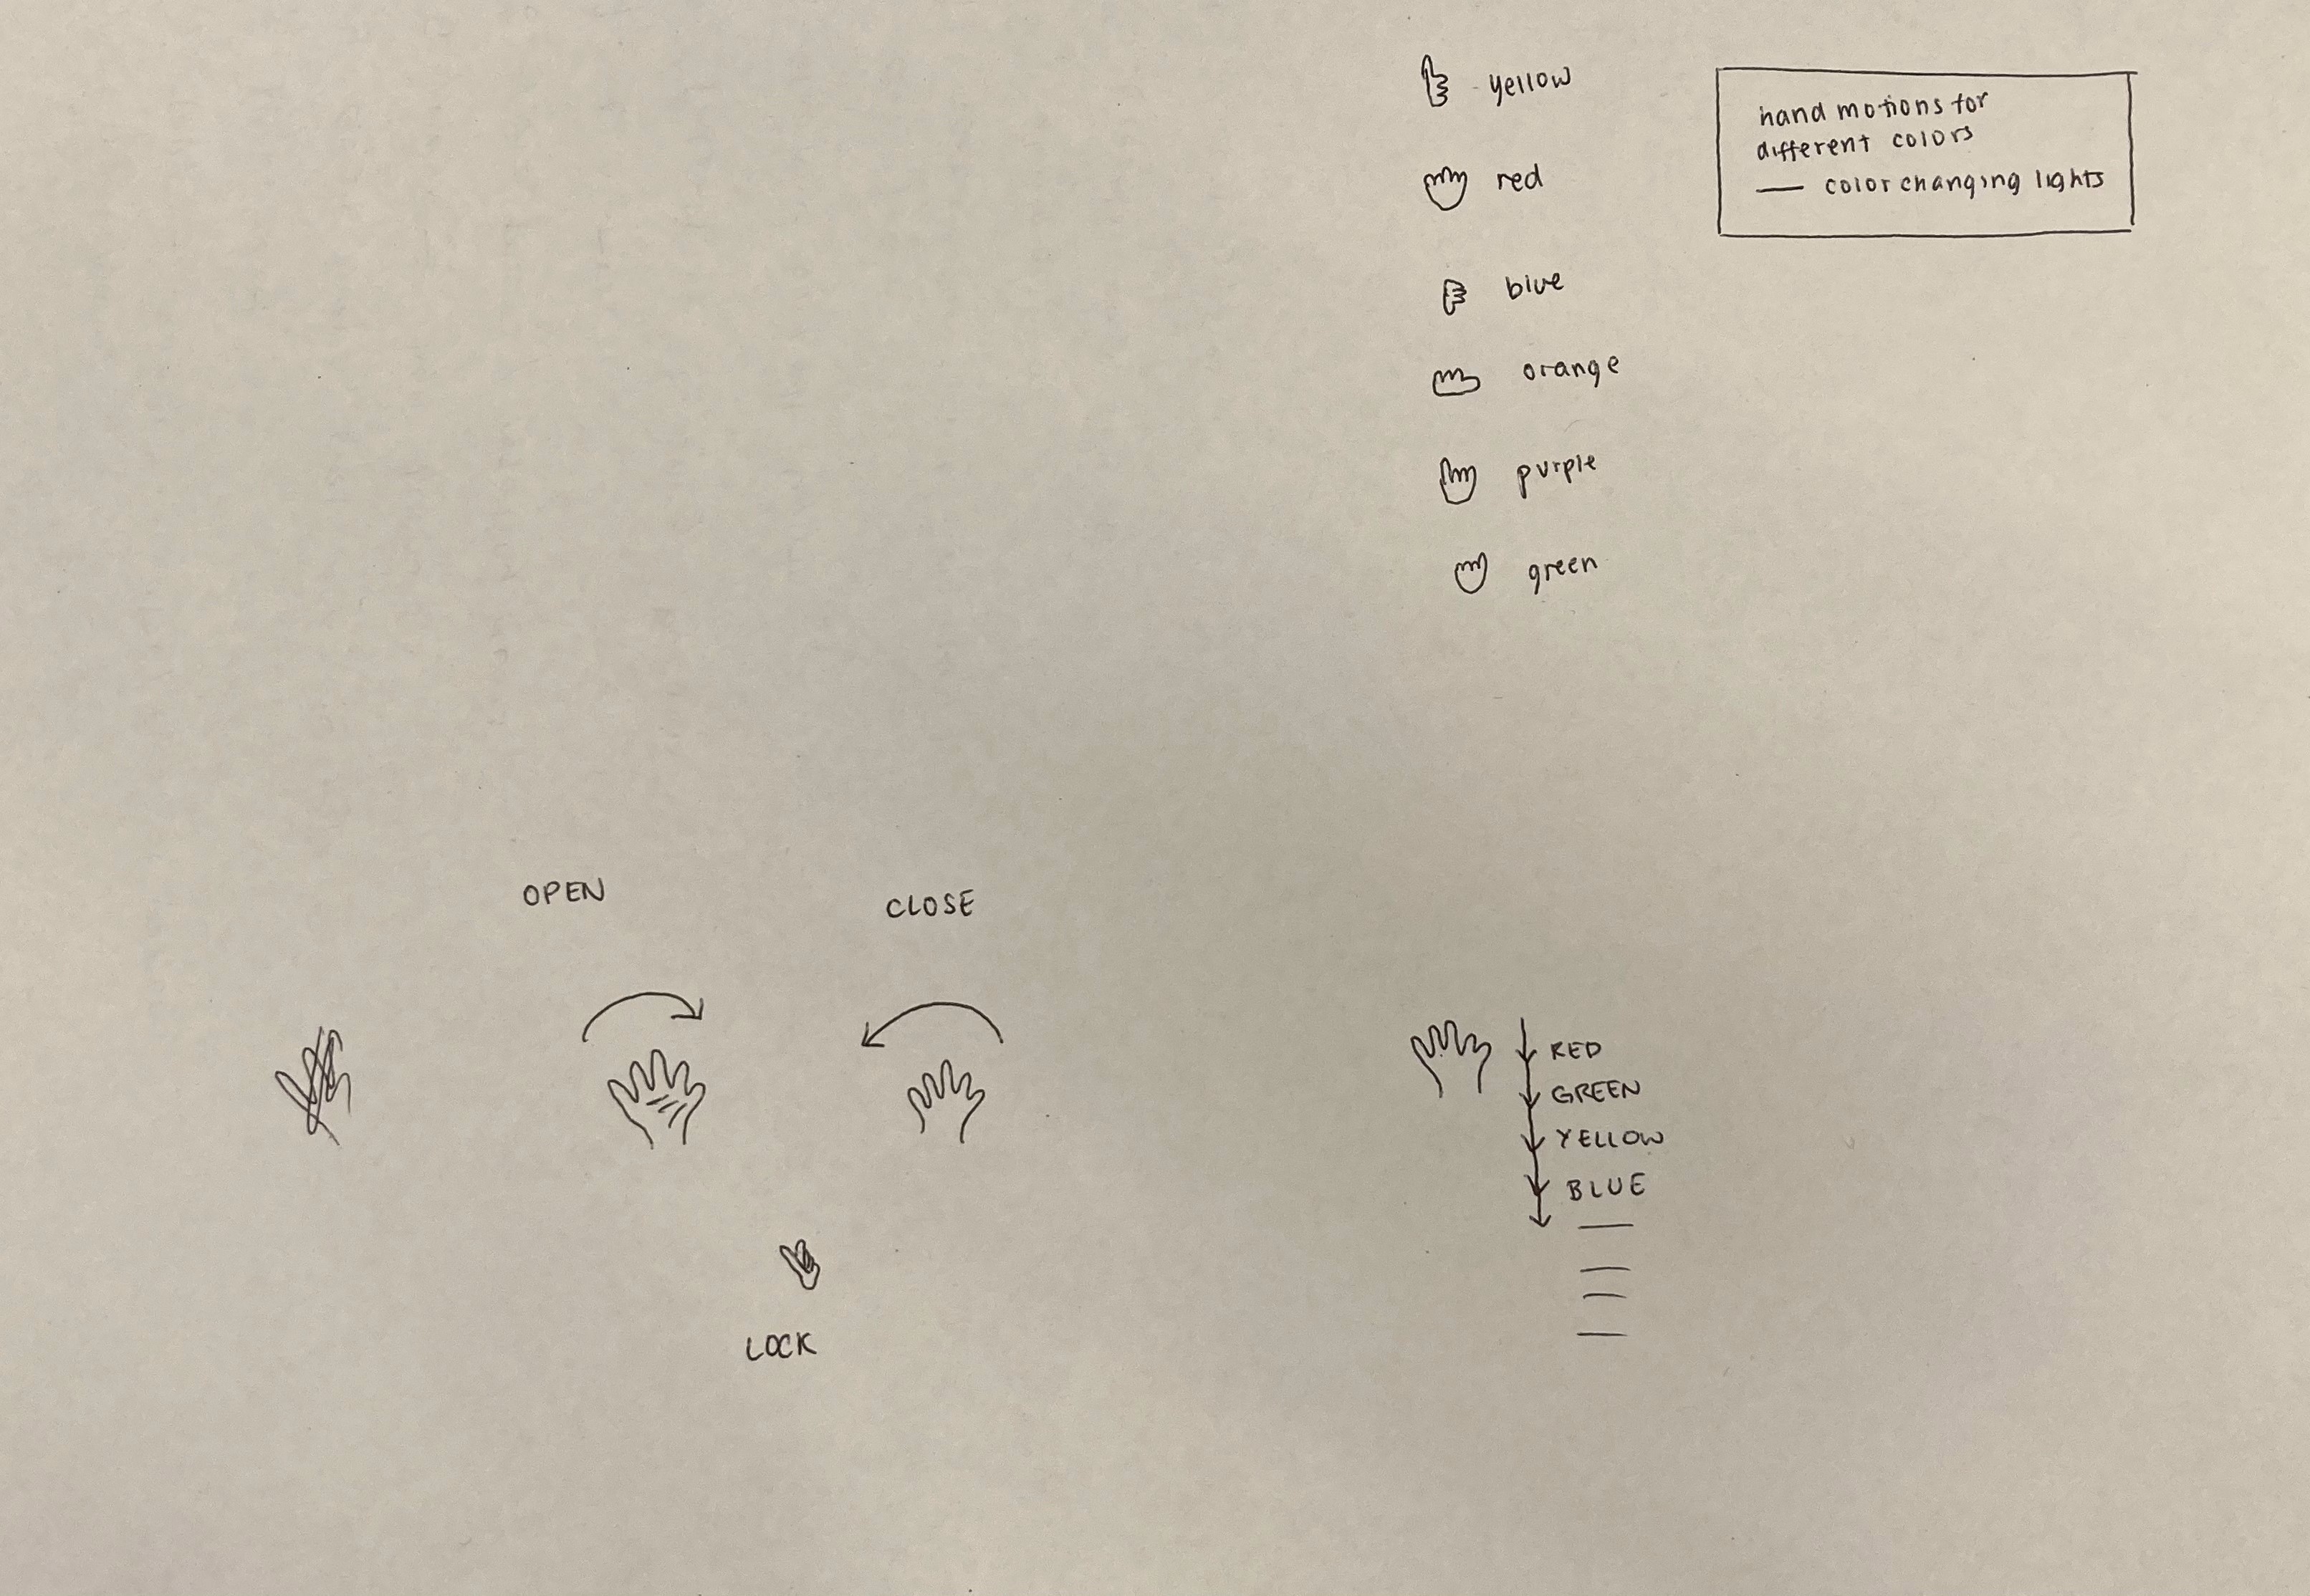 yellow
red
blue
orange
purple
green
hand motions for
different colors
— color changing lights
OPEN
CLOSE
LOCK
RED
GREEN
YELLOW
BLUE